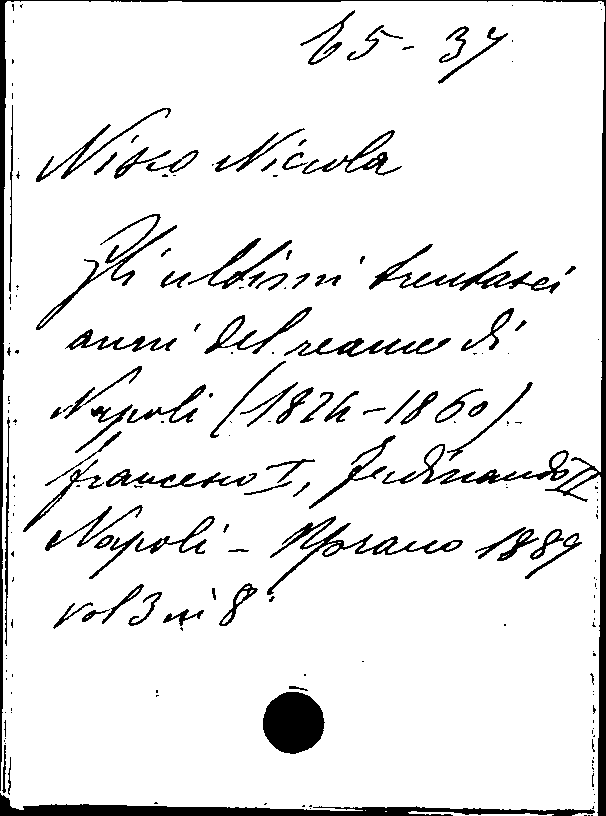 E5-37
Nisco Nicola
Gli ultimi trentasei
anni del reame di
Napoli (1824-1860)
Francesco I, Ferdinando II
Napoli - Morano 1889
vol 3 in 8°